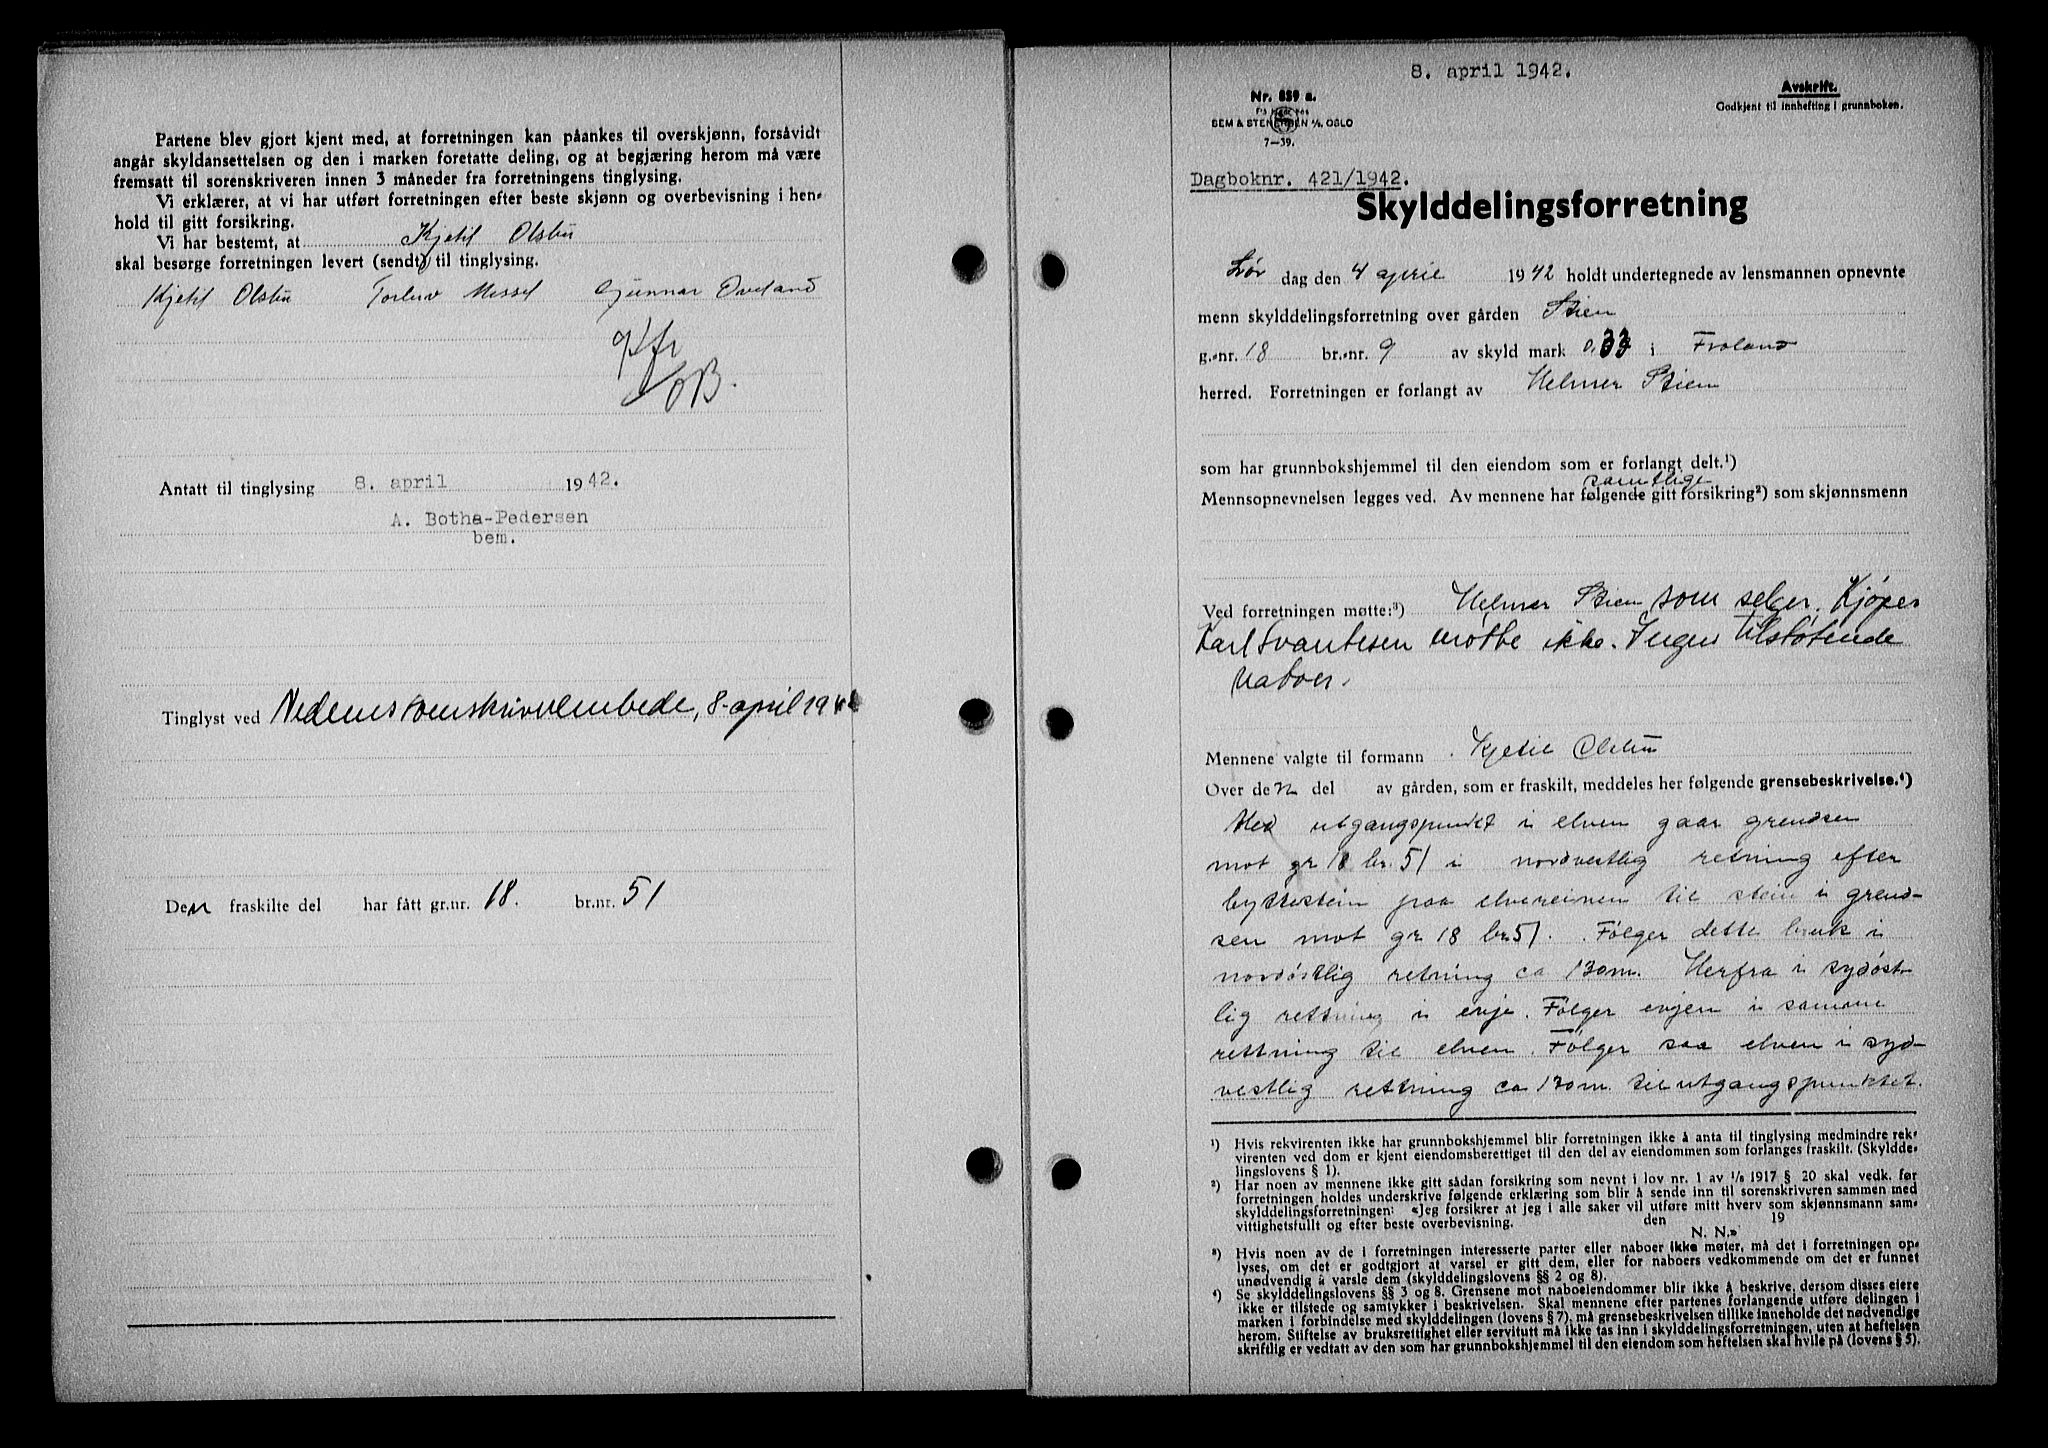 Partene blev gjort kjent med, at forretningen kan påankes til overskjønn, forsåvidt
angår skyldansettelsen og den i marken foretatte deling, og at begjæring herom må være
fremsatt til sorenskriveren innen 3 måneder fra forretningens tinglysing.
Vi erklærer, at vi har utført forretningen efter beste skjønn og overbevisning i hen-
hold til gitt forsikring.
Vi har bestemt, at Kjetil Olsbu
skal besørge forretningen levert (sendt) til tinglysing.
Kjetil Olsbu Torluv Messel Gunnar Oveland
Antatt til tinglysing 8. april 1942.
A. Botha-Pedersen
bem.
Tinglyst ved Nedenes sorenskriverembede, 8. april 1942
Den fraskilte del har fått gr.nr. 18. br.nr. 51
8. april 1942.
Nr. 859 a.
SEM & STENERSEN A/S OSLO
7—39.
Avskrift.
Godkjent til innhefting i grunnboken.
Dagboknr. 421/1942.
Skylddelingsforretning
Lør dag den 4 april 1942 holdt undertegnede av lensmannen opnevnte
menn skylddelingsforretning over gården Stien
g.-nr. 18 br.-nr. 9 av skyld mark 0,33 i Froland
herred. Forretningen er forlangt av Helmer Stien
som har grunnbokshjemmel til den eiendom som er forlangt delt.¹)
samtlige
Mennsopnevnelsen legges ved. Av mennene har følgende gitt forsikring²) som skjønnsmenn
Ved forretningen møtte:³) Helmer Stien som selger. Kjøper
Karl Svantesen møtte ikke. Ingen tilstøtende
naboer.
Mennene valgte til formann Kjetil Olsbu
Over den del av gården, som er fraskilt, meddeles her følgende grensebeskrivelse.⁴)
Med utgangspunkt i elven gaar grendsen
mot gr 18 br. 51 i nordvestlig retning efter
byttestein paa elvereinen til stein i grend-
sen mot gr 18 br 51. Følger dette bruk i
nordøstlig retning ca 130 m. Herfra i sydøst-
lig rettning i evje. Følger evjen i samme
rettning til elven. Følger saa elven i syd-
vestlig rettning ca 130 m. til utgangspunktet.
¹) Hvis rekvirenten ikke har grunnbokshjemmel blir forretningen ikke å anta til tinglysing medmindre rek-
virenten ved dom er kjent eiendomsberettiget til den del av eiendommen som forlanges fraskilt. (Skyldde-
lingslovens § 1).
²) Har noen av mennene ikke gitt sådan forsikring som nevnt i lov nr. 1 av 1/8 1917 § 20 skal vedk. før
forretningen holdes underskrive følgende erklæring som blir å sende inn til sorenskriveren sammen med
skylddelingsforretningen: «Jeg forsikrer at jeg i alle saker vil utføre mitt hverv som skjønnsmann sam-
vittighetsfullt og efter beste overbevisning. den 19
N. N.»
³) Hvis noen av de i forretningen interesserte parter eller naboer ikke møter, må det i forretningen op-
lyses, om det er godtgjort at varsel er gitt dem, eller for naboers vedkommende om det er funnet
unødvendig å varsle dem (skylddelingslovens §§ 2 og 8).
⁴) Se skylddelingslovens §§ 3 og 8. Grensene mot naboeiendommer blir ikke å beskrive, dersom disses eiere
ikke er tilstede og samtykker i beskrivelsen. Skal mennene efter partenes forlangende utføre delingen i
marken i forbindelse med skylddelingen (lovens § 7), må grensebeskrivelsen tillike inneholde det nødvendige
herom. Stiftelse av bruksrettighet eller servitutt må ikke tas inn i skylddelingsforretningen, uten at heftelsen
skriftlig er vedtatt av den som har grunnbokshjemmel til den eiendom som heftelsen skal hvile på (lovens § 5).